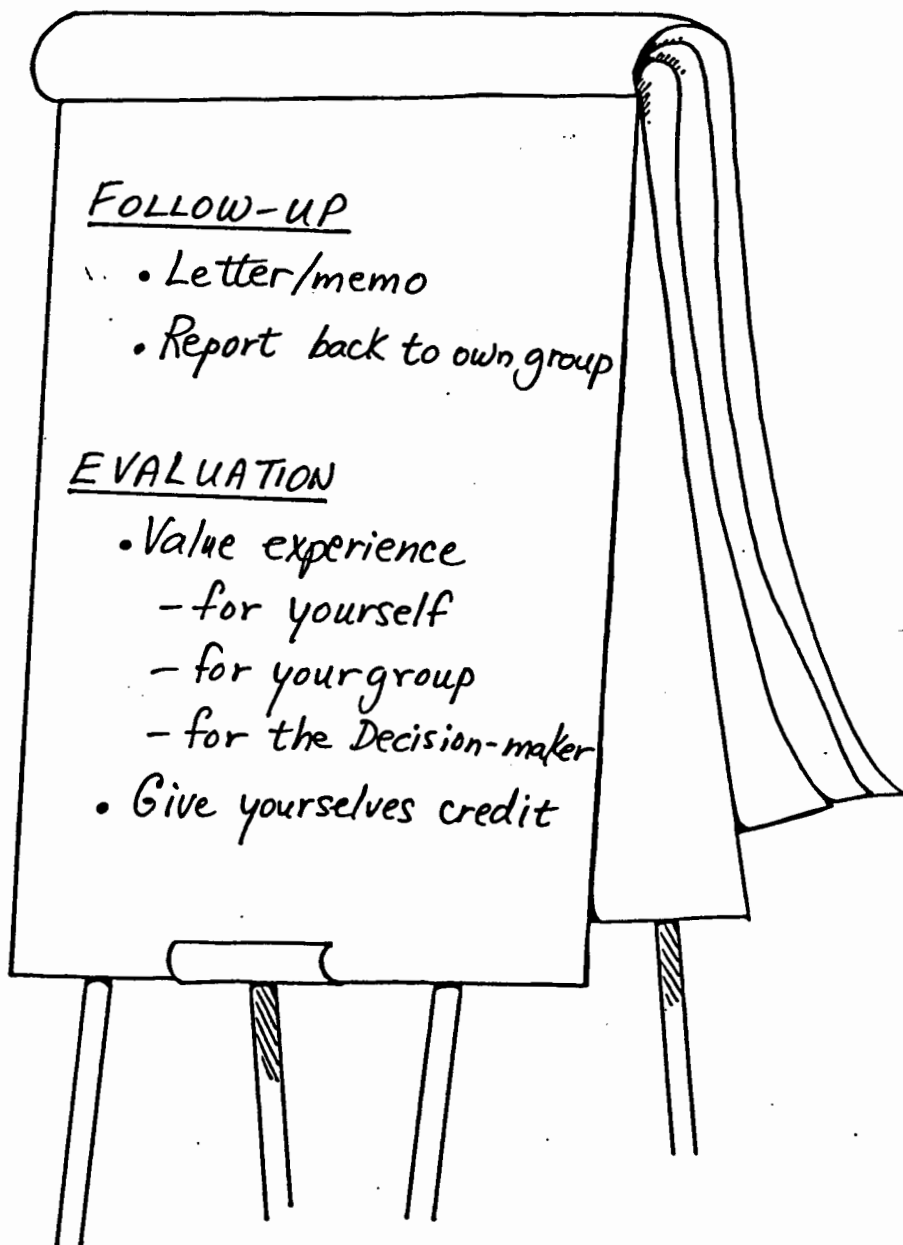 FOLLOW-UP
• Letter/memo
• Report back to own group
EVALUATION
• Value experience
- for yourself
- for your group
- for the Decision-maker
• Give yourselves credit